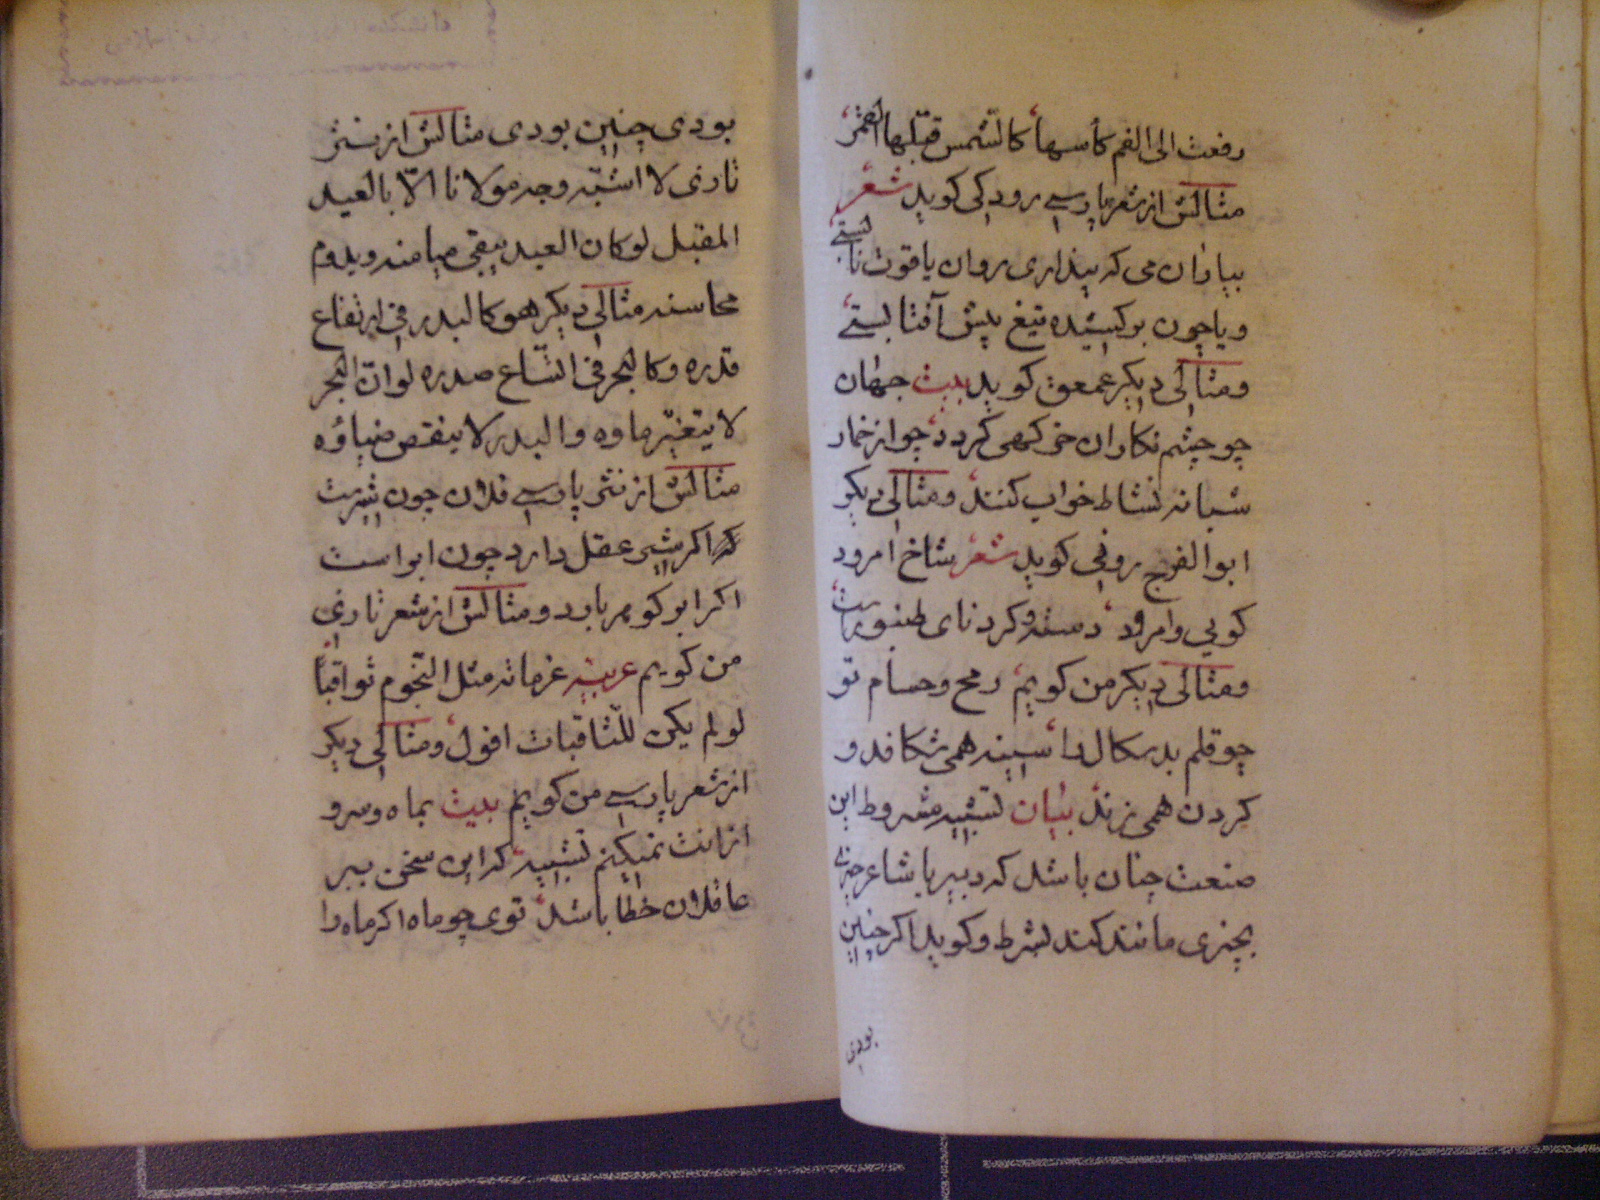 رفعت الی الفم کأسها کالشمس قبلها القمر
مثالش از شعر پارسے رودکی کوید شعر
بیاران می که پنداری روان یاقوت نابستے
و یا چون برکشیده تیغ پیش آفتابستے
و مثالی دیکر عمعق کوید بیت جهان
چو چشم نکاران کردد چو از خمار
شبانه نشاط خواب کنند و مثالی دیکر
ابو الفرج رونی کوید شعر شاخ امرود
کویی و امرود دسته و کردنای طنبورست
و مثالی دیکر من کویم رمح و حسام تو
چو قلم بدسکال را سینه همی شکافد و
کردن همی زند بیان تشبیه مشروط این
صنعت چنان باشد که دبیر یا شاعر چیزی
بچیزی مانند کند بشرط و کوید اکر چنین
بودی
بودی چنین بودی مثالش از نثر
تازی لا اشبّه وجه مولانا الّا بالعید
المقبل لو کان العید یبقی میامنه و یدوم
محاسنه مثالی دیکر هو کالبدر فی ارتفاع
قدره و کالبحر فی اتّساع صدره لو انّ البحر
لا یتغیّر ماوه و البدر لا ینقص ضیاؤه
مثالش از نثر پارسے فلان چون شیرست
اکر شیر عقل دارد چون ابر است
اکر ابر کوهر بارد و مثالش از شعر تازی
من کویم عربیّه عزماته مثل النّجوم ثواقباً
لو لم یکن للثّاقبات افول و مثالی دیکر
از شعر پارسے من کویم بیت بماه و سرو
از انت نمیکنم تشبیه که این سخن ببر
عاقلان خطا باشد توی چو ماه اکر ماه را